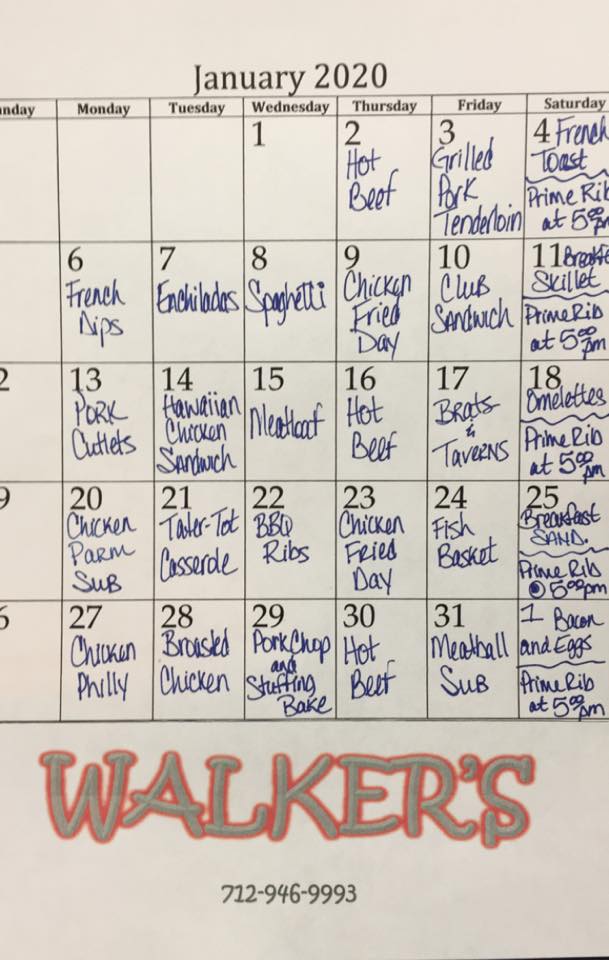 January 2020
nday Monday Tuesday Wednesday Thursday Friday Saturday
1
2
Hot
Beef
3
Grilled
Pork
Tenderloin
4 French
Toast
Prime Rib
at 5:00pm
6
French
Dips
7
Enchiladas
8
Spaghetti
9
Chicken
Fried
Day
10
Club
Sandwich
11 Breakfa
Skillet
Prime Rib
at 5:00pm
2
13
Pork
Cutlets
14
Hawaiian
Chicken
Sandwich
15
Meatloaf
16
Hot
Beef
17
Brats
&
Taverns
18
Omelettes
Prime Rib
at 5:00pm
9
20
Chicken
Parm
Sub
21
Tater-Tot
Casserole
22
BBQ
Ribs
23
Chicken
Fried
Day
24
Fish
Basket
25
Breakfast
Sand.
Prime Rib
@ 5:00pm
6
27
Chicken
Philly
28
Broasted
Chicken
29
Pork Chop
and
Stuffing
Bake
30
Hot
Beef
31
Meatball
Sub
1 Bacon
and Eggs
Prime Rib
at 5:00pm
WALKER'S
712-946-9993